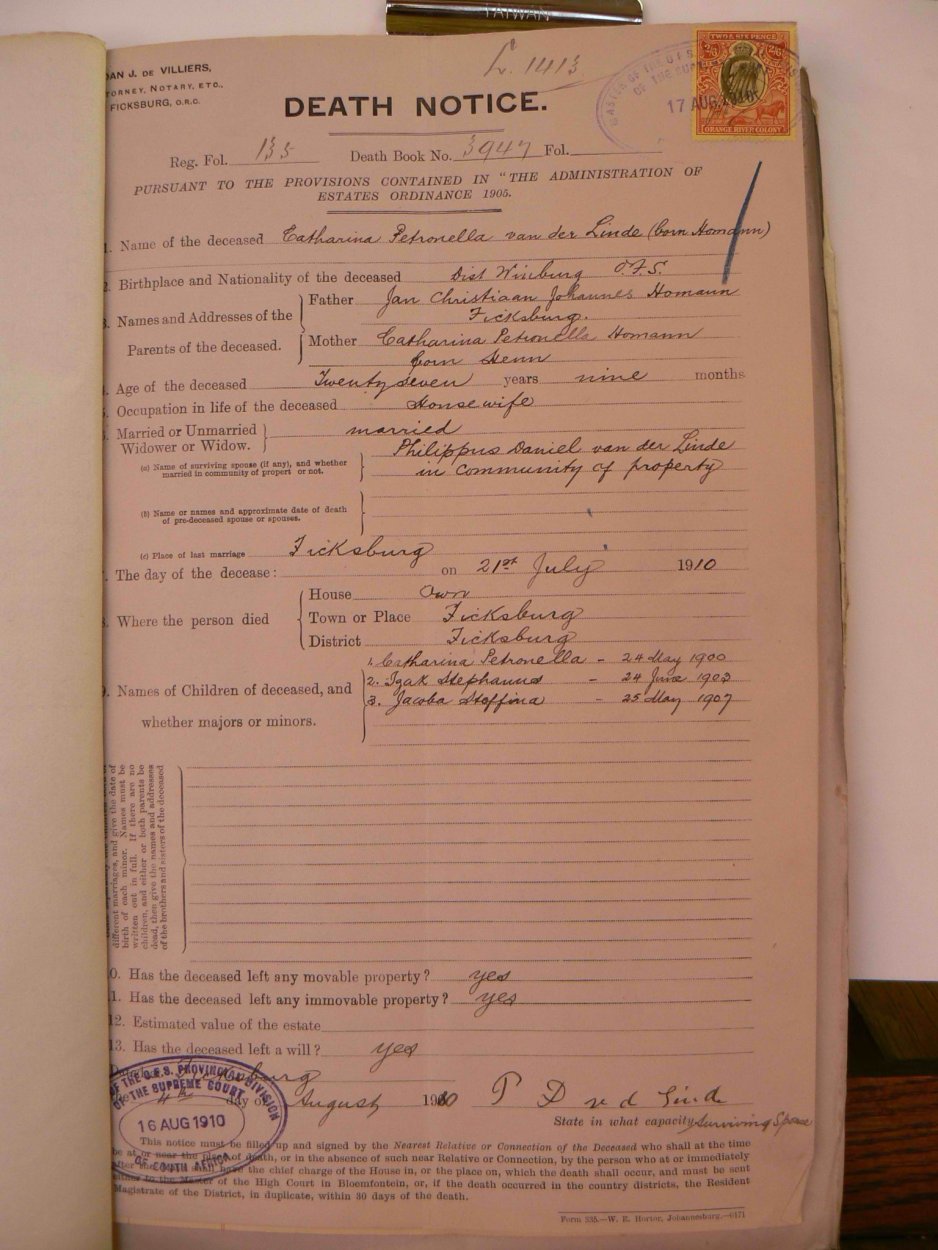 TAIWAN
DAN J. DE VILLIERS,
TORNEY, NOTARY, ETC.,
FICKSBURG, O.R.C.
L. 1413
TWO & SIX PENCE
2/6 2/6
ORANGE RIVER COLONY
17 AUG 1910
DEATH NOTICE.
Reg. Fol. 135 Death Book No. 3947 Fol.
PURSUANT TO THE PROVISIONS CONTAINED IN "THE ADMINISTRATION OF
ESTATES ORDINANCE 1905.
1. Name of the deceased Catharina Petronella van der Linde (born Homann)
2. Birthplace and Nationality of the deceased Dist Winburg O.F.S.
3. Names and Addresses of the Father Jan Christiaan Johannes Homann
Ficksburg.
Parents of the deceased. Mother Catharina Petronella Homann
born Henn
Age of the deceased Twenty seven years nine months
Occupation in life of the deceased Housewife
Married or Unmarried married
Widower or Widow.
Philippus Daniel van der Linde
(a) Name of surviving spouse (if any), and whether
married in community of propert or not. in community of property
(b) Name or names and approximate date of death
of pre-deceased spouse or spouses.
(c) Place of last marriage Ficksburg
The day of the decease: on 21st July 1910
House Own
Where the person died Town or Place Ficksburg
District Ficksburg
1. Catharina Petronella - 24 May 1900
2. Izak Stephanus - 24 June 1903
9. Names of Children of deceased, and 3. Jacoba Steffina - 25 May 1907
whether majors or minors.
different marriages, and give the date of
birth of each minor. Names must be
written out in full. If there are no
children, and either or both parents be
dead, then give the names and addresses
of the brothers and sisters of the deceased
0. Has the deceased left any movable property? yes
1. Has the deceased left any immovable property? yes
12. Estimated value of the estate
13. Has the deceased left a will? yes
OF THE O.F.S. PROVINCIAL DIVISION
OF THE SUPREME COURT
16 AUG 1910
OF SOUTH AFRICA
4th day of August 1910 P D v d Linde
State in what capacity Surviving Spouse
This notice must be filled up and signed by the Nearest Relative or Connection of the Deceased who shall at the time
be at or near the place of death, or in the absence of such near Relative or Connection, by the person who at or immediately
after the death shall have the chief charge of the House in, or the place on, which the death shall occur, and must be sent
either to the Master of the High Court in Bloemfontein, or, if the death occurred in the country districts, the Resident
Magistrate of the District, in duplicate, within 30 days of the death.
Form 335.—W. E. Hortor, Johannesburg.—6171